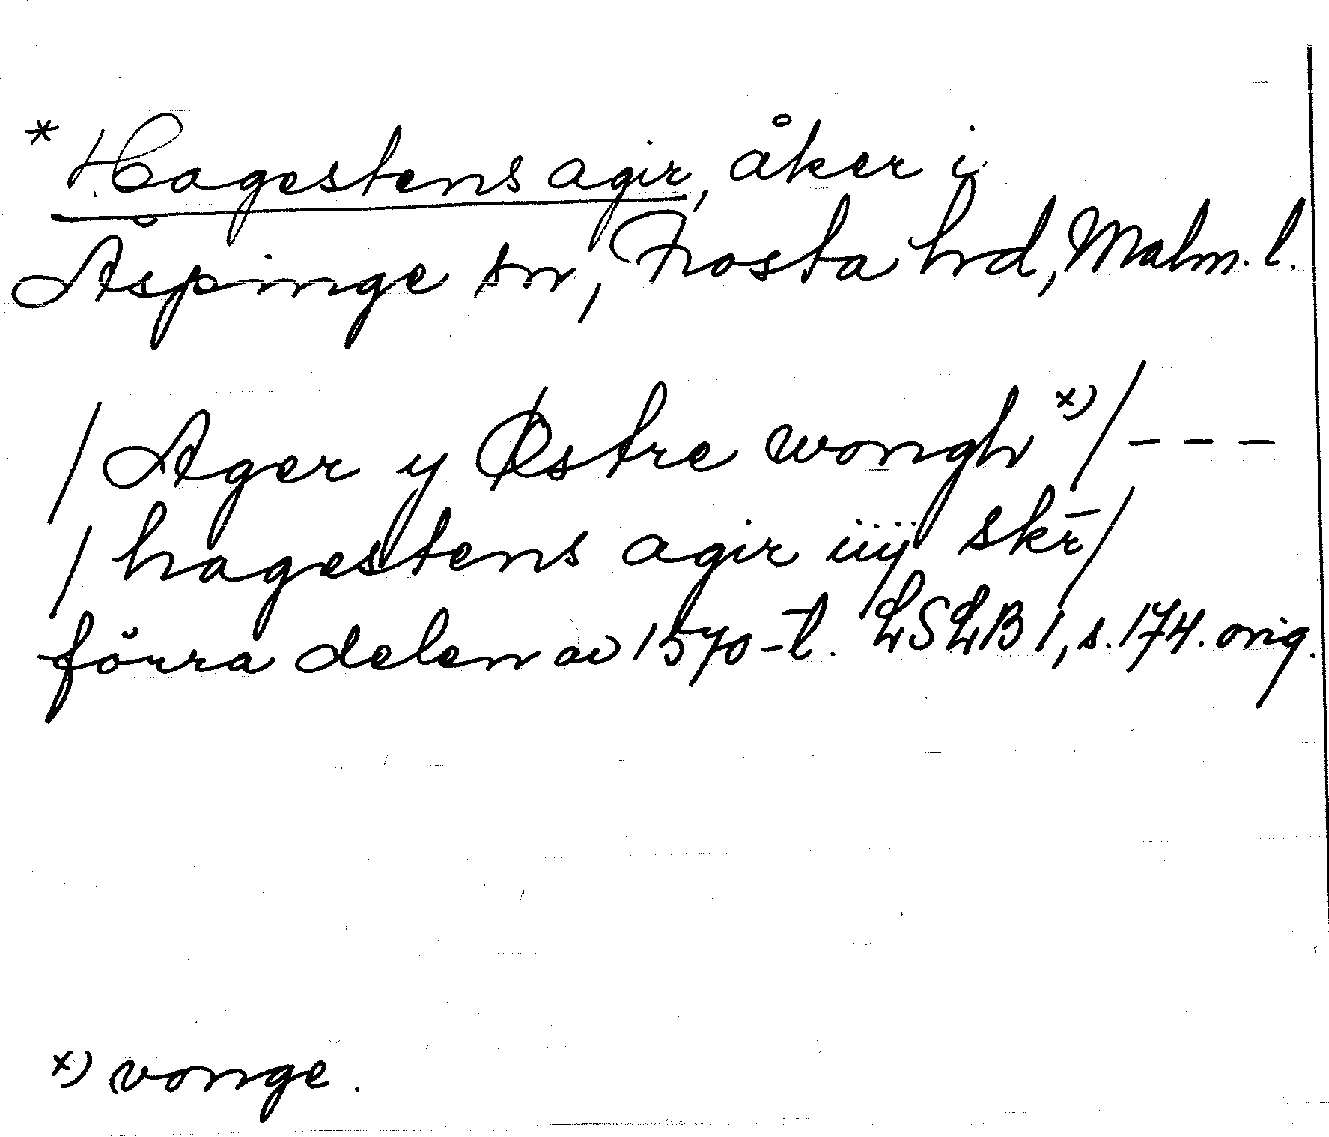 * Hagestens agir, åker i
Äspinge sn, Frosta hd, Malm. l.
/ Ager y Østre wongh x) / - - -
/ hagestens agir iiij skr̄ /
förra delen av 1570-t. LSLB 1, s. 174. orig.
x) vonge.